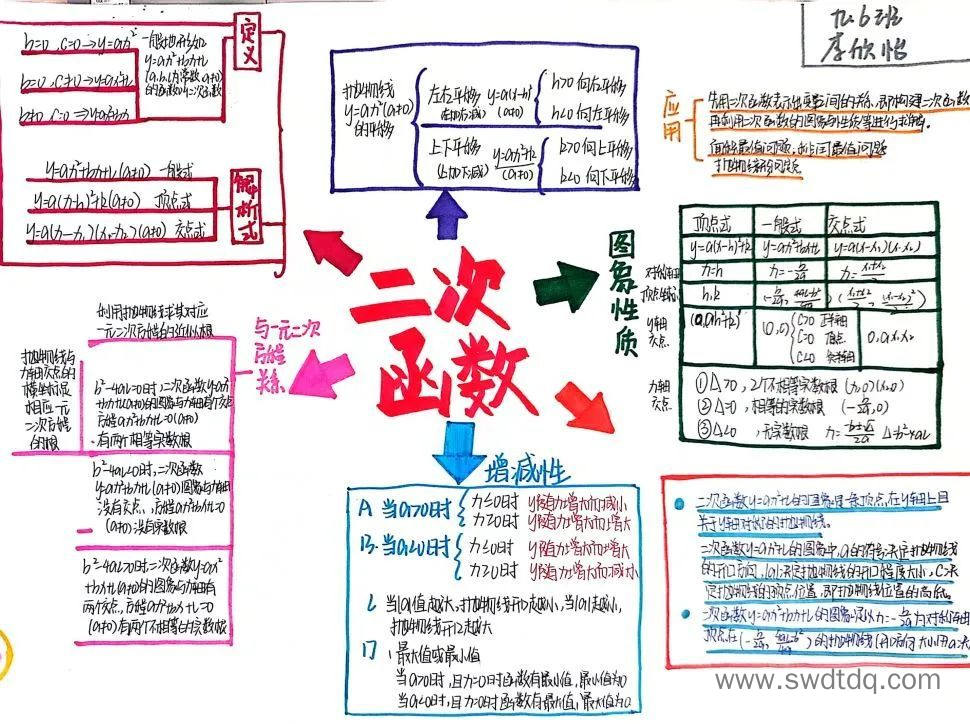 九.6班
李欣怡
二次
函数
定义
b=0,c=0→y=ax²
b=0,c≠0→y=ax²+c
b≠0,c=0→y=ax²+bx
一般地,形如
y=ax²+bx+c
(a,b,c为常数,a≠0)
的函数叫二次函数
解析式
y=ax²+bx+c(a≠0) 一般式
y=a(x-h)²+k(a≠0) 顶点式
y=a(x-x₁)(x-x₂)(a≠0) 交点式
抛物线
y=ax²(a≠0)
的平移
左右平移 y=a(x-h)²
(左加右减) (a≠0)
h>0 向右平移
h<0 向左平移
上下平移 y=ax²+k
(上加下减) (a≠0)
k>0 向上平移
k<0 向下平移
应用
先用二次函数表示出变量间的关系,即构建二次函数
再利用二次函数的图象与性质等进行求解.
面积最值问题,利润最值问题
图象性质
顶点式 一般式 交点式
y=a(x-h)²+k y=ax²+bx+c y=a(x-x₁)(x-x₂)
对称轴
x=h x=-b/2a x=(x₁+x₂)/2
顶点坐标
h,k
y轴
交点
(0,ah²+k)
(0,c)
c>0 正半轴
c=0 原点
c<0 负半轴
x轴
交点
①△>0,2个不相等实数根 (x₁,0)(x₂,0)
②△=0,相等的实数根 (-b/2a,0)
③△<0,无实数根 x=(-b±√△)/2a △=b²-4ac
与一元二次
方程
关系
利用抛物线求其对应
一元二次方程的近似根
抛物线与
x轴交点的
横坐标是
相应一元
二次方程
的根
b²-4ac=0时,二次函数y=ax²
+bx+c(a≠0)的图像与x轴有1个交点
方程ax²+bx+c=0(a≠0)
有两个相等实数根
b²-4ac<0时,二次函数
y=ax²+bx+c(a≠0)图像与x轴
没有交点,方程ax²+bx+c=0
(a≠0)没有实数根
b²-4ac>0时,二次函数y=ax²
+bx+c(a≠0)的图像与x轴有
两个交点,方程ax²+bx+c=0
(a≠0)有两个不相等的实数根
增减性
A 当a>0时
x≤0时 y随x增大而减小
x≥0时 y随x增大而增大
B. 当a<0时
x≤0时 y随x增大而增大
x≥0时 y随x增大而减小
C 当|a|值越大,抛物线开口越小,当|a|越小,
抛物线开口越大
D 、最大值或最小值
当a>0时,且x=0时函数有最小值,最小值为0
当a<0时,且x=0时函数有最大值,最大值为0
二次函数y=ax²+c的图像是一条顶点在y轴上且
关于y轴对称的抛物线.
二次函数y=ax²+c的图像中,a的符号决定抛物线
的开口方向,|a|决定抛物线的开口程度大小,c决
定抛物线的顶点位置,即抛物线位置的高低.
二次函数y=ax²+bx+c的图像是以x=-b/2a为对称轴
www.swdtdq.com